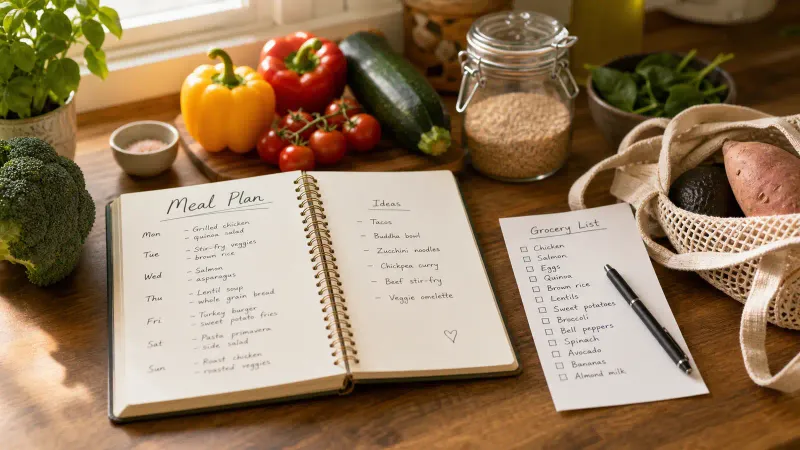 Meal Plan
Mon
- Grilled chicken
- quinoa salad
Tue
- Stir-fry veggies
- brown rice
Wed
- Salmon
- asparagus
Thu
- Lentil soup
- whole grain bread
Fri
- Turkey burger
- sweet potato fries
Sat
- Pasta primavera
- side salad
Sun
- Roast chicken
- roasted veggies
Ideas
- Tacos
- Buddha bowl
- Zucchini noodles
- Chickpea curry
- Beef stir-fry
- Veggie omelette
Grocery List
Chicken
Salmon
Eggs
Quinoa
Brown rice
Lentils
Sweet potatoes
Broccoli
Bell peppers
Spinach
Avocado
Bananas
Almond milk